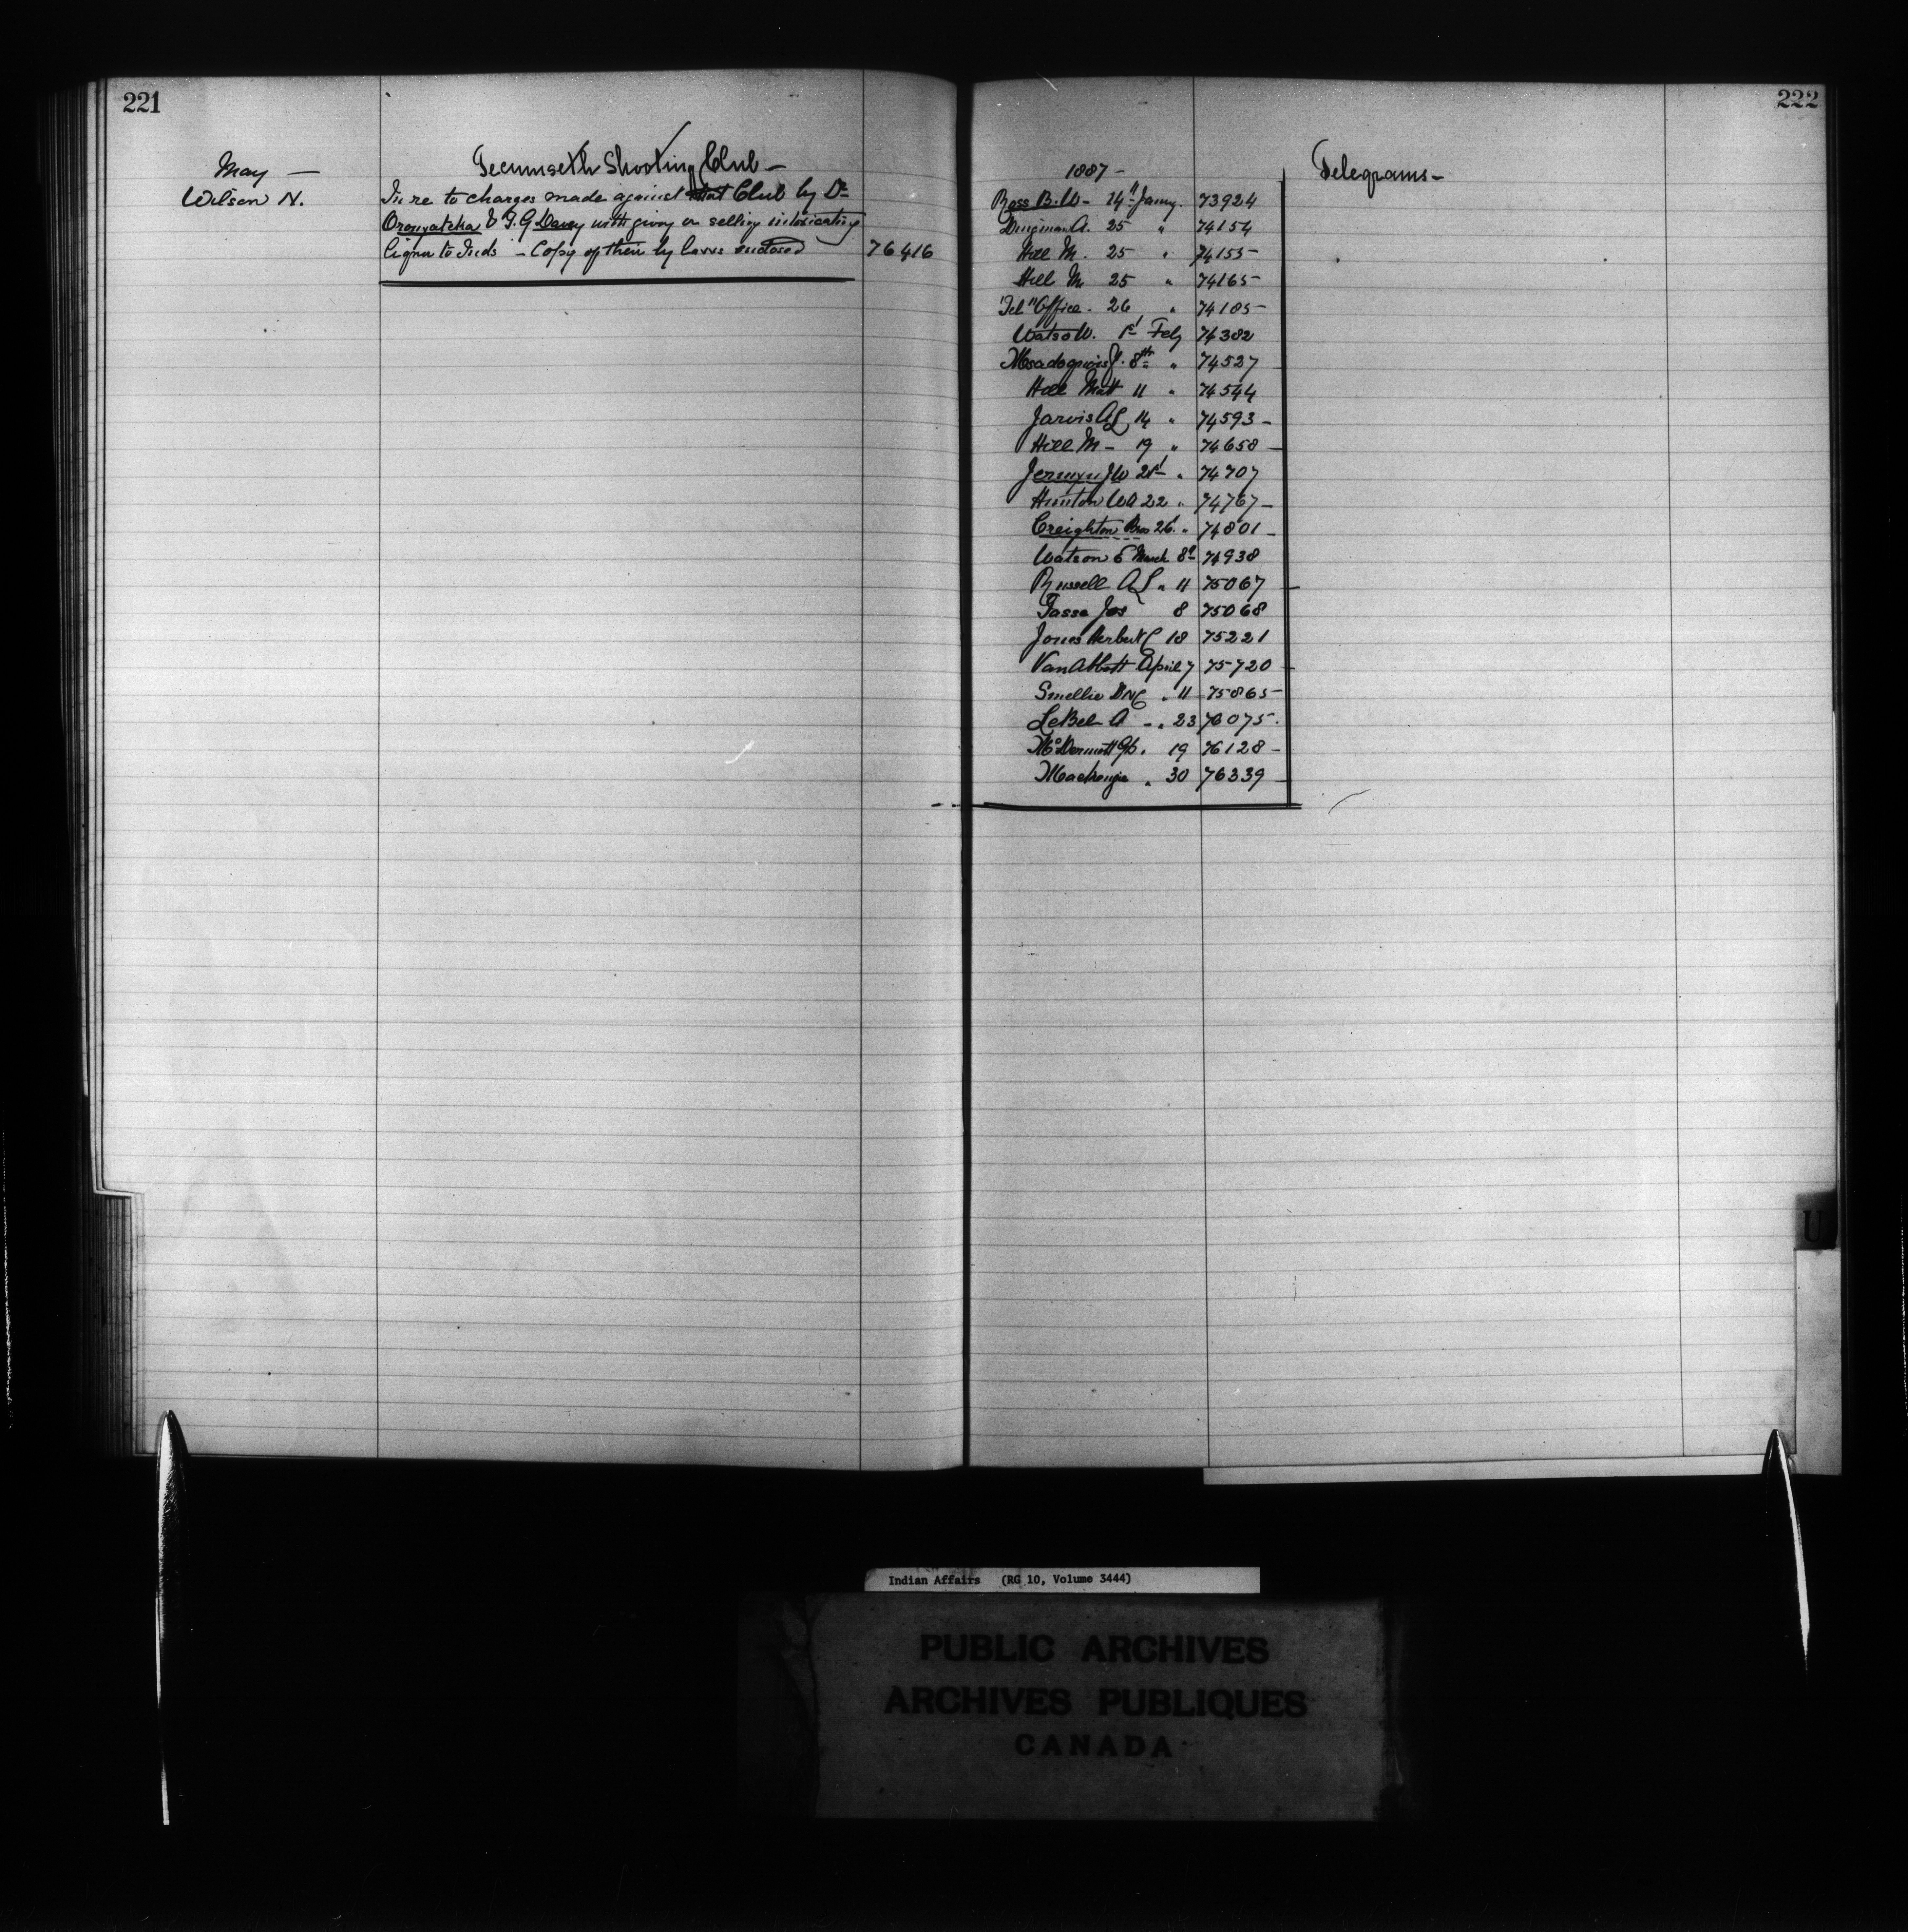 221
May —
Tecumseth Shooting Club —
Wilson N.
In re to charges made against that Club by Dr
Oronyateka & F. G Davey with giving or selling intoxicating
liquor to Inds - Copy of their by laws enclosed
76416
222
1887 —
Telegrams —
Ross B. W - 14" Jany. 73924
Dingman A. 25 " 74154
Hill M. 25 " 74155
Hill M 25 " 74165
"Tel" Office - 26 " 74185
Watso W. 1st Feby 74382
J. 8th " 74527
Hill Matt 11 " 74544
Jarvis A L 14 " 74593 -
Hill M - 19 " 74658
Jermyn J W 21st " 74707
Hunton W A 22 " 74767 -
Creighton Bros 26 " 74801 -
Watson E March 8th 74938
Russell A L " 11 75067
Tasse Jos 8 75068
Jones Herbert C 18 75221
Van Abbott April 7 75720
Smellie D M C " 11 75865
LeBel A - " 23 76075
McDermott Geo. 19 76128 -
Mackenzie " 30 76339
U
Indian Affairs (RG 10, Volume 3444)
PUBLIC ARCHIVES
ARCHIVES PUBLIQUES
CANADA